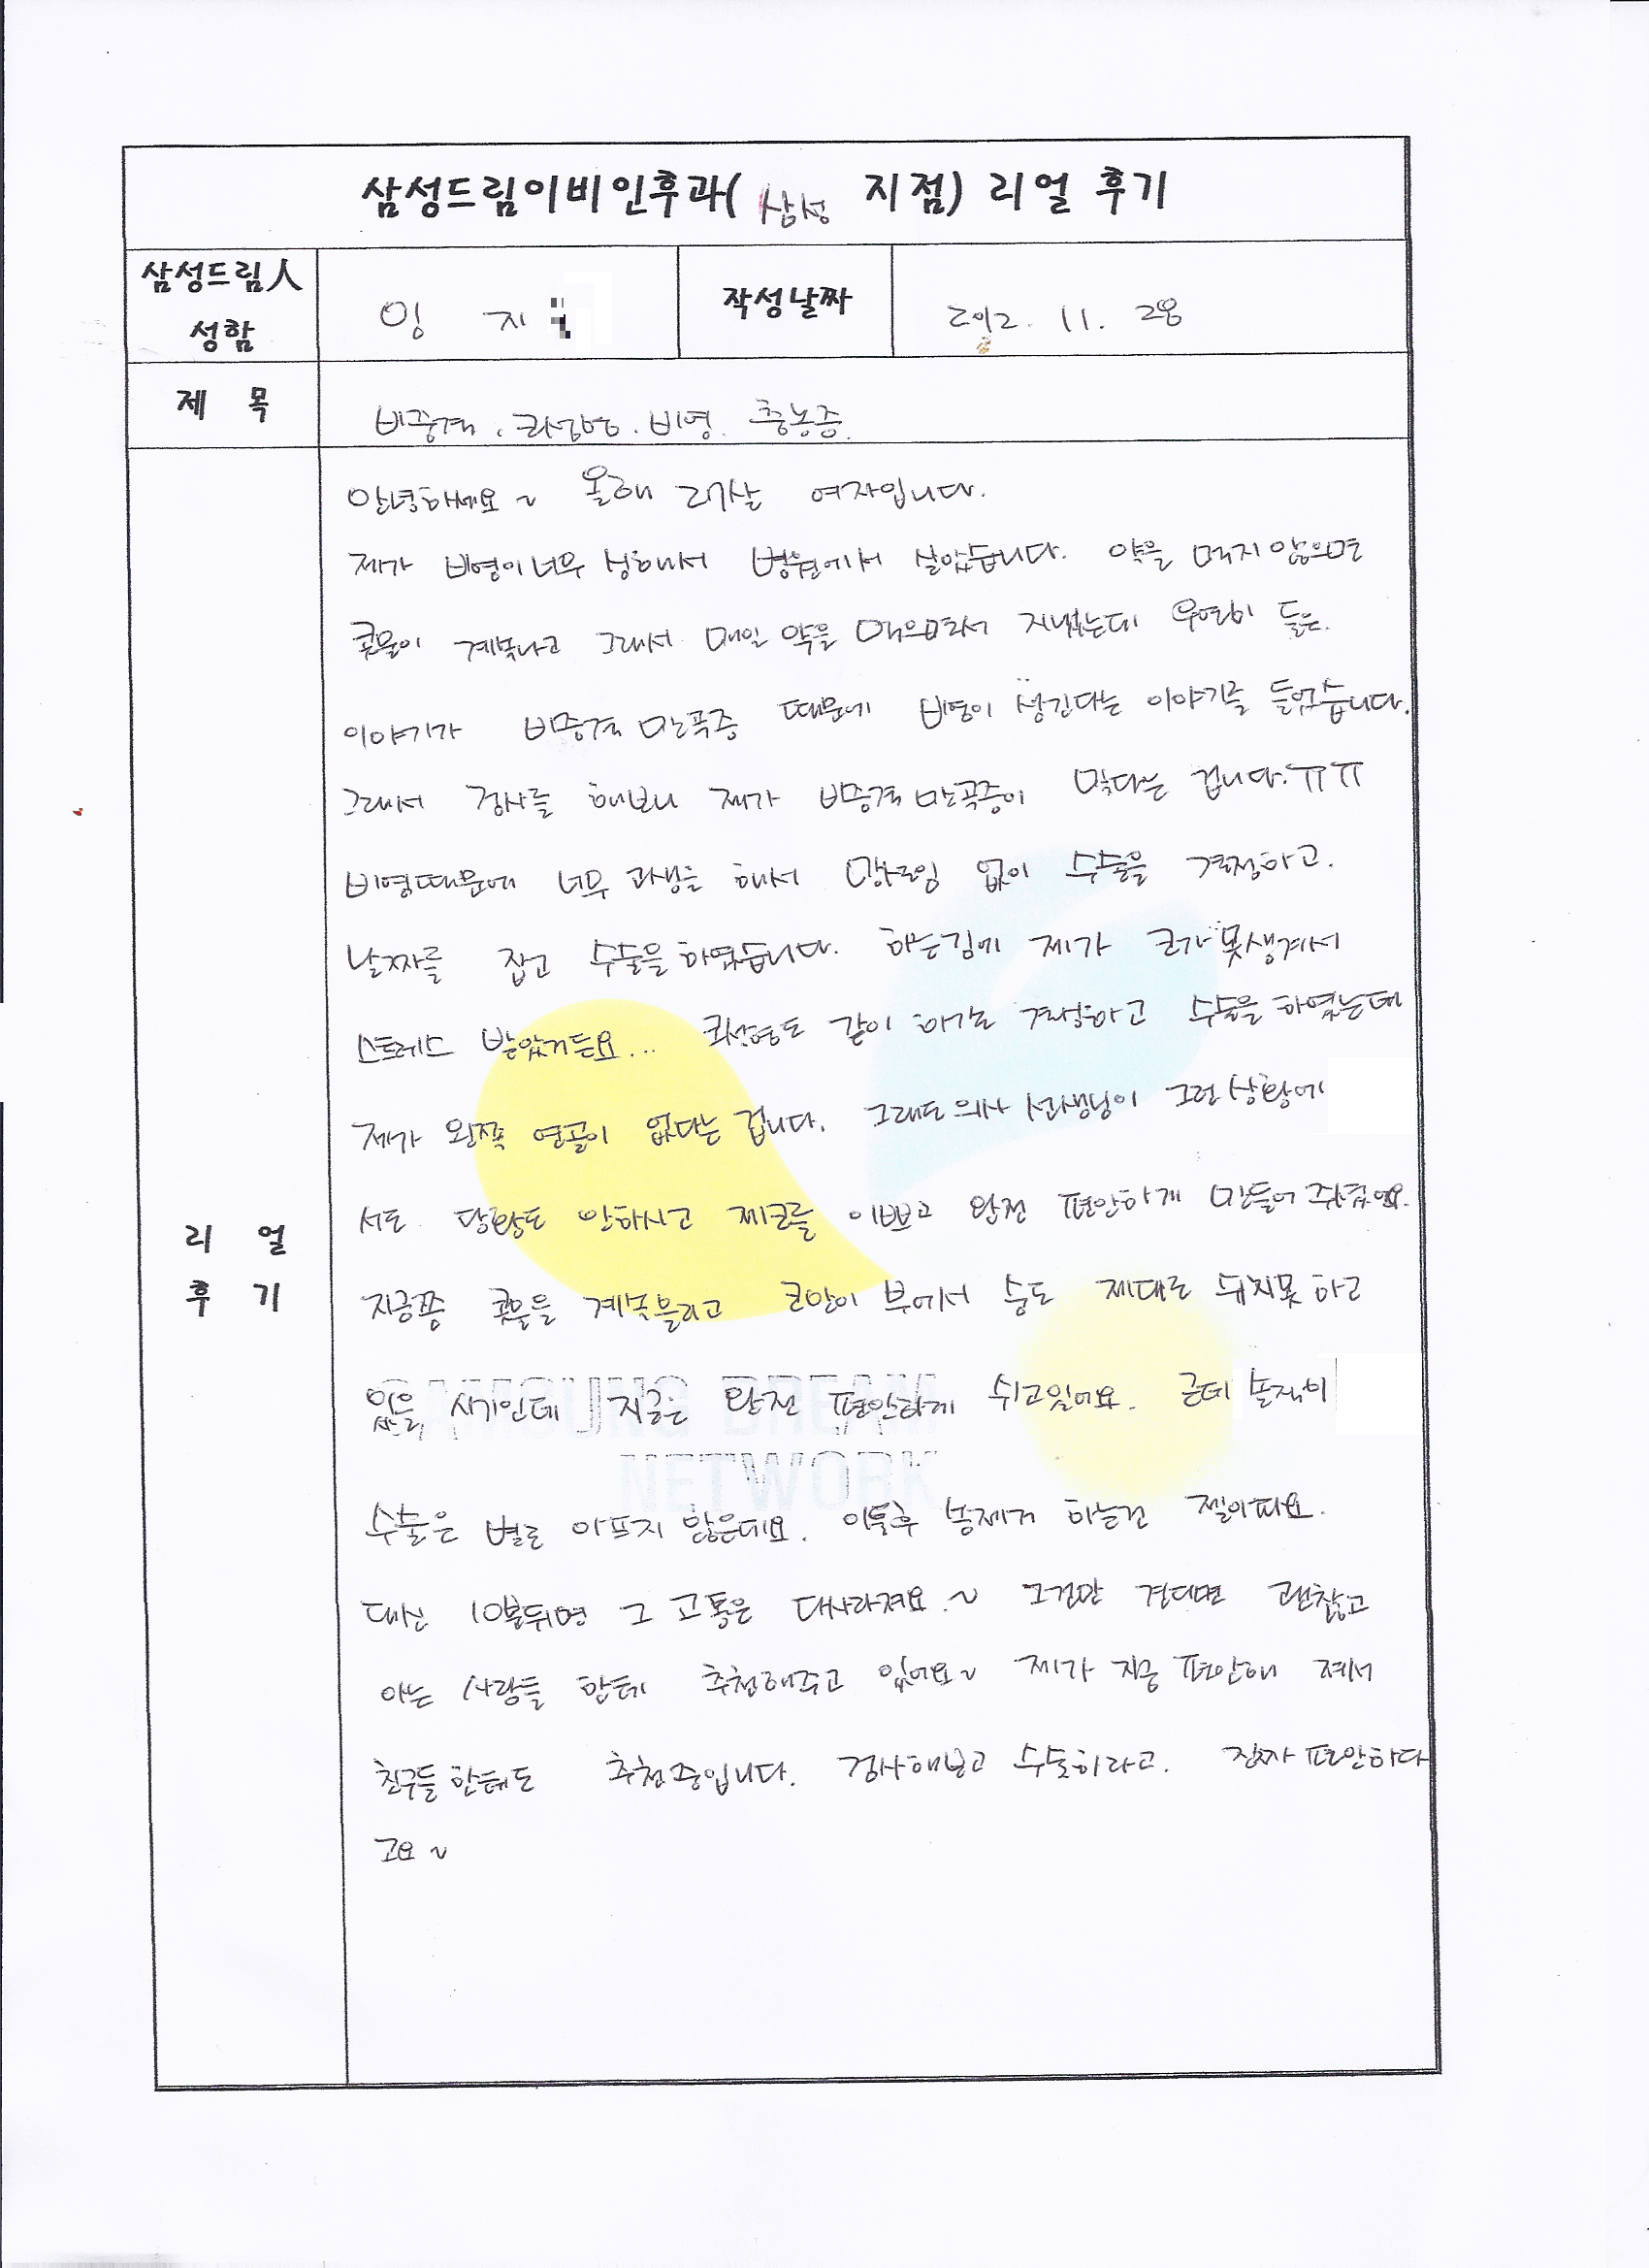 삼성드림이비인후과( 삼성 지점) 리얼 후기
삼성드림人
성함
임 지
작성날짜
2012. 11. 28
제 목
비중격. 코성형. 비염. 축농증.
안녕하세요~ 올해 27살 여자입니다.
제가 비염이 너무 심해서 병원에서 살았습니다. 약을 먹지 않으면
콧물이 계속나고 그래서 매일 약을 먹으면서 지냈는데 우연히 들은.
이야기가 비중격 만곡증 때문에 비염이 생긴다는 이야기를 들었습니다.
그래서 검사를 해보니 제가 비중격 만곡증이 맞다는 겁니다.ㅠㅠ
비염때문에 너무 고생을 해서 망설임 없이 수술을 결정하고.
날짜를 잡고 수술을 하였습니다. 하는김에 제가 코가 못생겨서
스트레스 받았거든요... 코성형도 같이 하기로 결정하고 수술을 하였는데
제가 왼쪽 연골이 없다는 겁니다. 그래도 의사 선생님이 그런 상황에
서도 당황도 안하시고 제코를 이쁘고 완전 편안하게 만들어 주셨어요.
지금쯤 콧물을 계속흘리고 코안이 부어서 숨도 제대로 쉬지못 하고
있을 시기인데 지금은 완전 편안하게 쉬고있어요. 근데 솔직히
SAMSUNG DREAM
NETWORK
수술은 별로 아프지 않은데요. 이틀후 솜제거 하는건 젤아파요.
대신 10분뒤면 그 고통은 다사라져요.~ 그것만 견디면 괜찮고
아는 사람들 한테 추천해주고 있어요~ 제가 지금 편안해 져서
친구들 한테도 추천중입니다. 검사해보고 수술하라고. 진짜 편안하다
고요~
리 얼
후 기